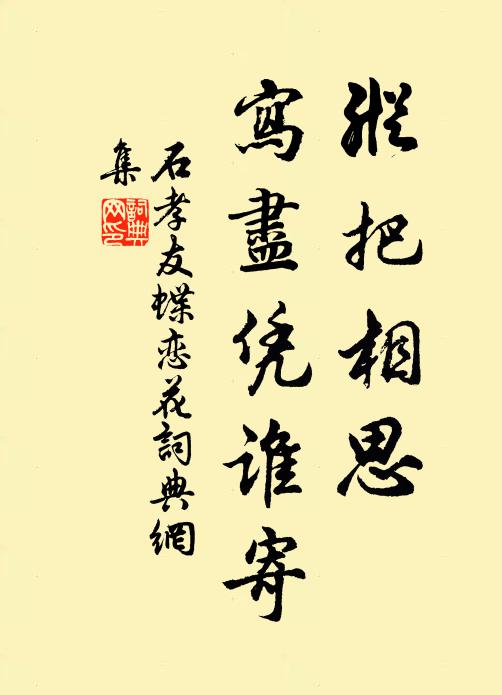 縱把相思
寫盡凭誰寄
石孝友蝶恋花詞典網
集
詞典网印